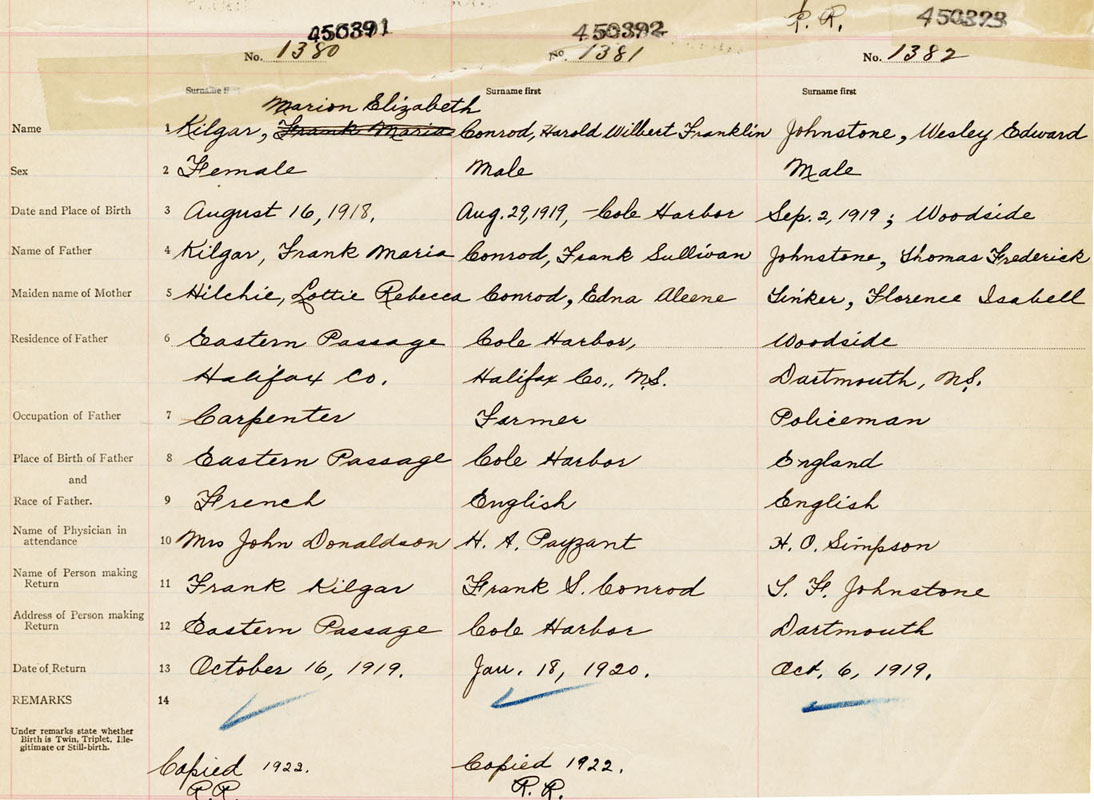 P. R.
450391 450392 450393
No. 1380 No. 1381 No. 1382
Surname first Surname first Surname first
Marion Elizabeth
Name 1 Kilgar, Frank Maria Conrod, Harold Wilbert Franklin Johnstone, Wesley Edward
Sex 2 Female Male Male
Date and Place of Birth 3 August 16, 1918. Aug. 29, 1919, - Cole Harbor Sep. 2, 1919; Woodside
Name of Father 4 Kilgar, Frank Maria Conrod, Frank Sullivan Johnstone, Thomas Frederick
Maiden name of Mother 5 Hilchie, Lottie Rebecca Conrod, Edna Aleene Tinker, Florence Isabell
Residence of Father 6 Eastern Passage Cole Harbor, Woodside
Halifax Co. Halifax Co., N.S. Dartmouth, N.S.
Occupation of Father 7 Carpenter Farmer Policeman
Place of Birth of Father 8 Eastern Passage Cole Harbor England
and
Race of Father. 9 French English English
Name of Physician in
attendance 10 Mrs John Donaldson H. A. Payzant H. O. Simpson
Name of Person making
Return 11 Frank Kilgar Frank S. Conrod T. F. Johnstone
Address of Person making
Return 12 Eastern Passage Cole Harbor Dartmouth
Date of Return 13 October 16, 1919. Jan. 18, 1920. Oct. 6, 1919.
REMARKS 14
Under remarks state whether
Birth is Twin, Triplet, Ille-
gitimate or Still-birth.
Copied 1922. Copied 1922.
P.R. P.R.